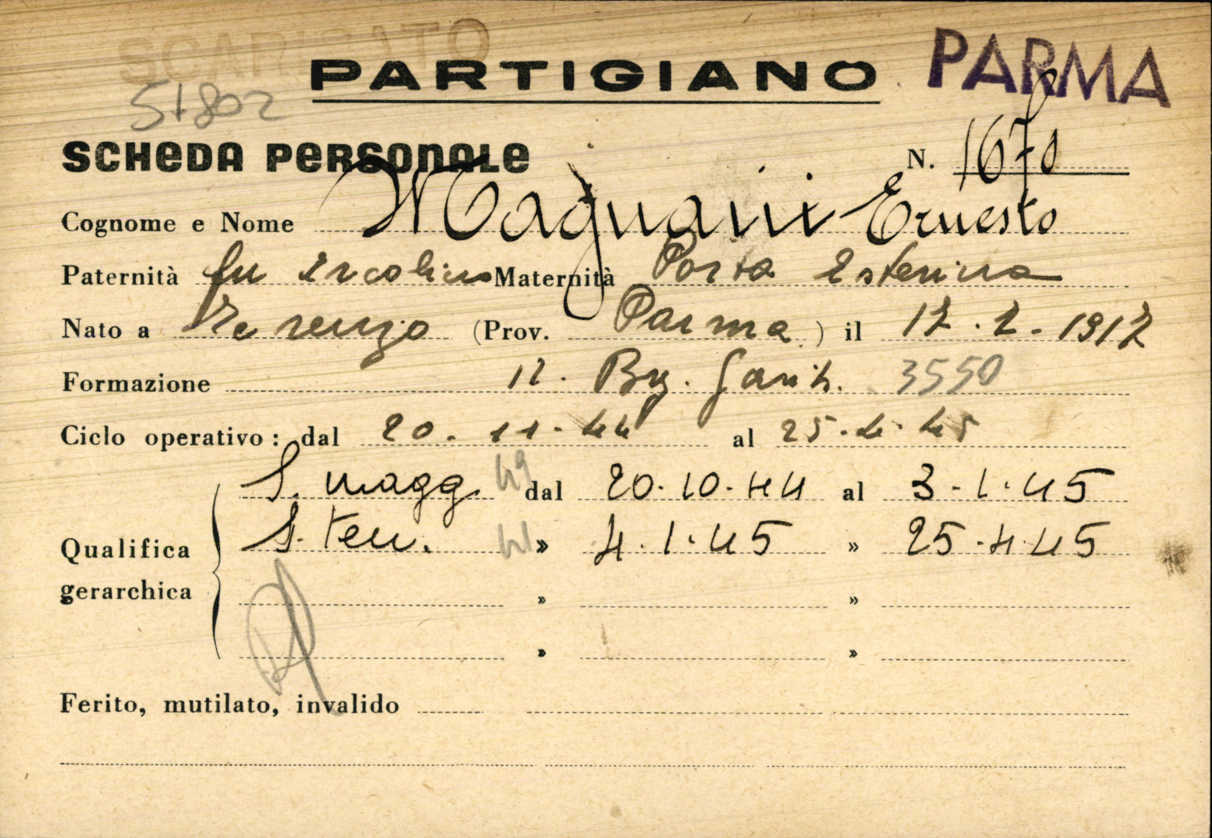 SCARICATO
PARTIGIANO PARMA
51802
SCHEDA PERSONALE N. 1670
Cognome e Nome Magnani Ernesto
Paternità fu Ercolino Maternità Porta Esterina
Nato a (Prov. Parma) il 12.2.1912
Formazione 12. Brg. Garib. 3550
Ciclo operativo: dal 20.11.44 al 25.4.45
S. magg. 49 dal 20.10.44 al 3.1.45
Qualifica S. Ten. 41 » 4.1.45 » 25.4.45
gerarchica » »
» »
Ferito, mutilato, invalido